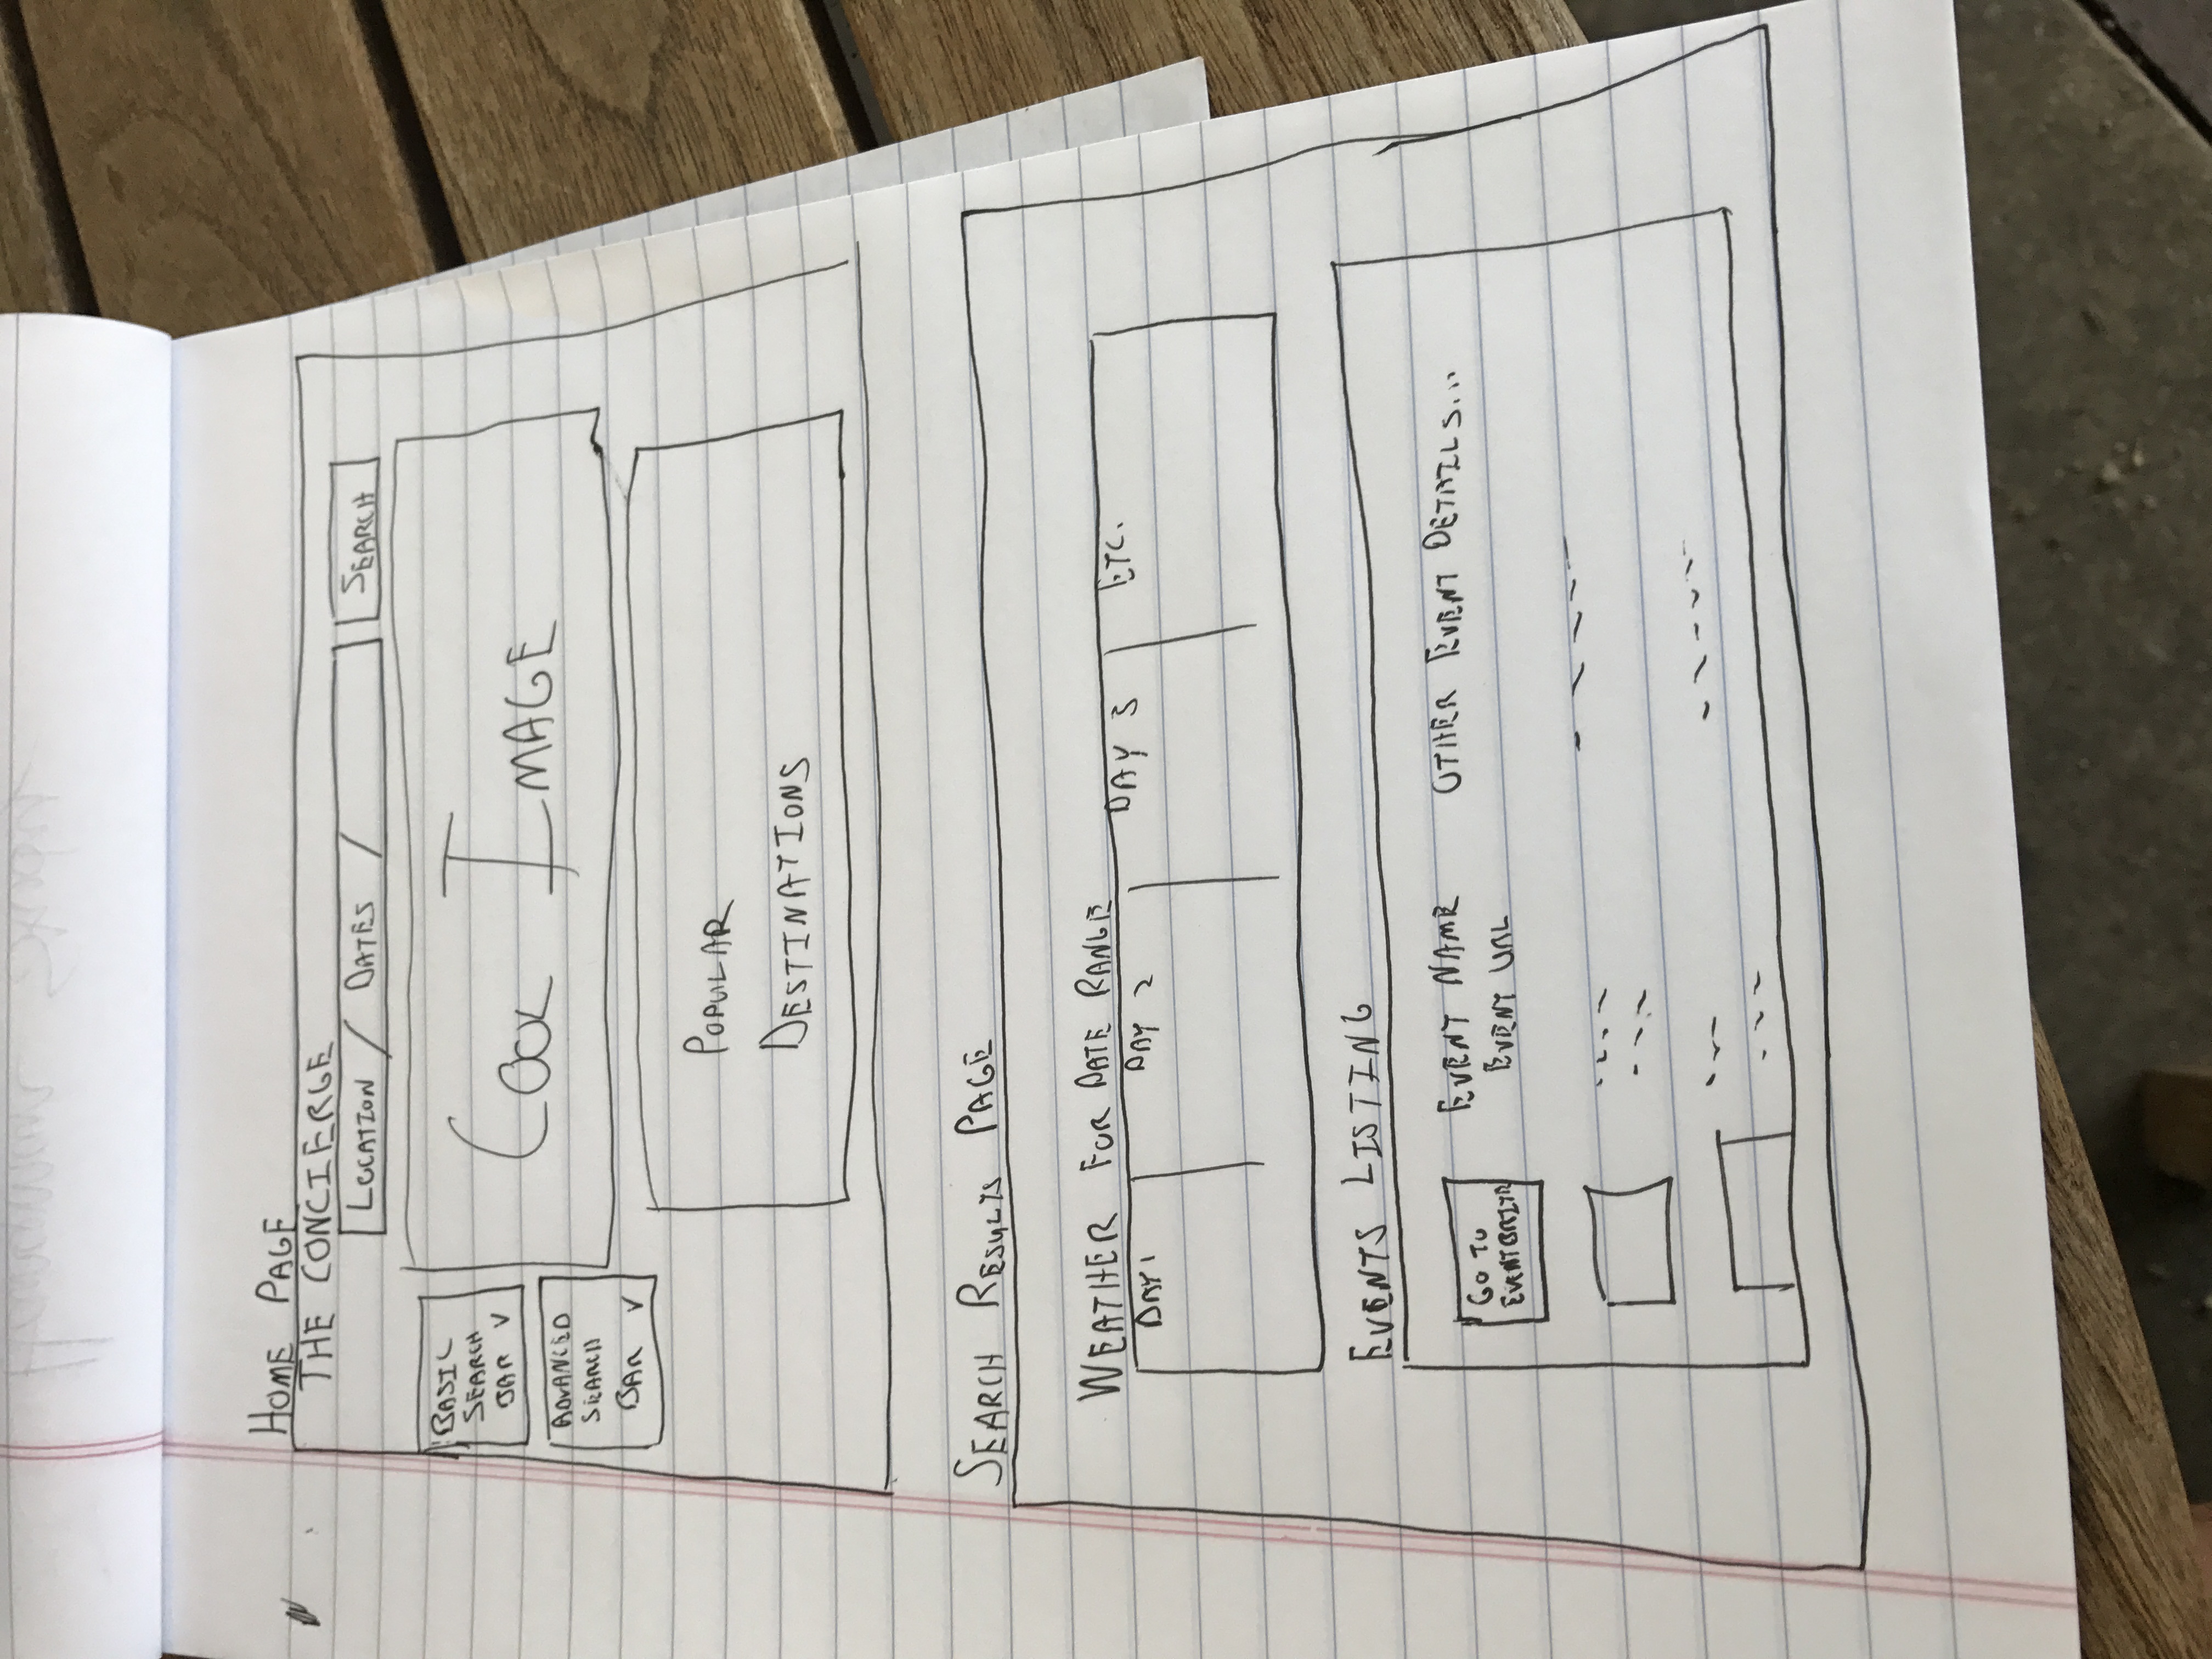 HOME PAGE
THE CONCIERGE
LOCATION / DATES /
SEARCH
BASIC
SEARCH
BAR V
ADVANCED
SEARCH
BAR V
COOL IMAGE
POPULAR
DESTINATIONS
SEARCH RESULTS PAGE
WEATHER FOR DATE RANGE
DAY 1 DAY 2 DAY 3 ETC.
EVENTS LISTING
GO TO
EVENTBRITE
EVENT NAME
EVENT URL
OTHER EVENT DETAILS...